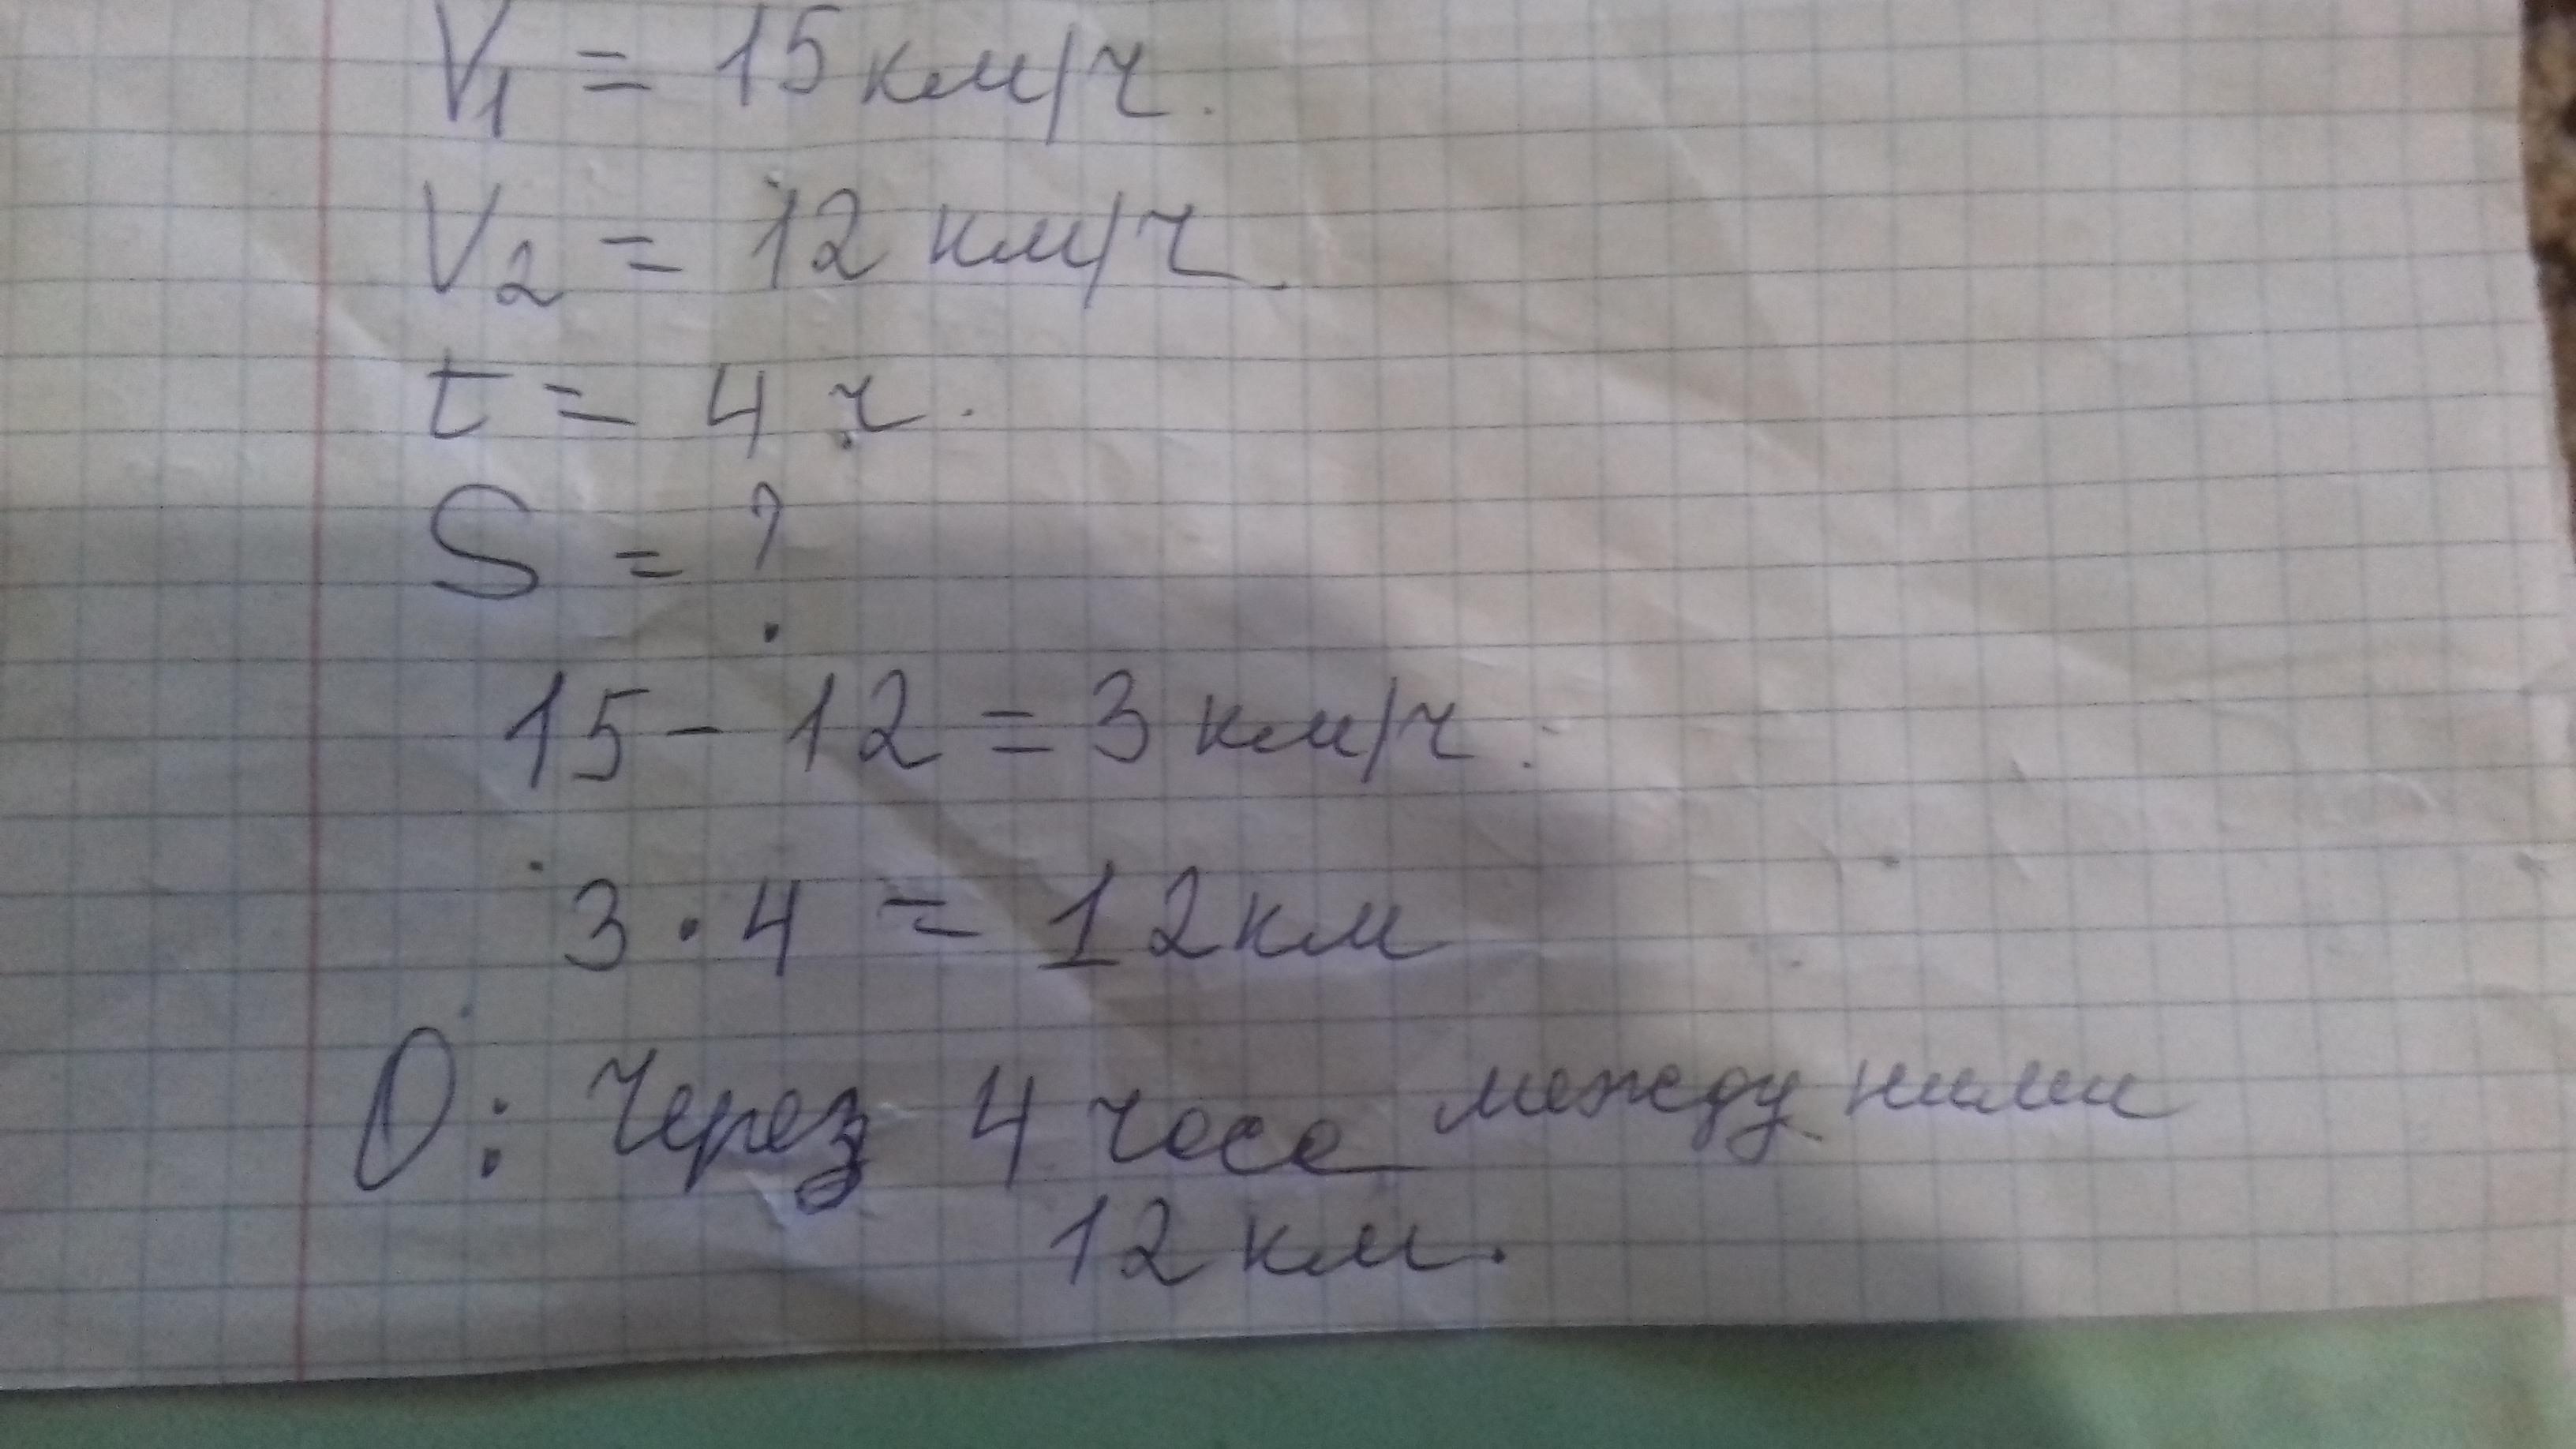 V₁ = 15 км/ч.
V₂ = 12 км/ч.
t = 4 ч.
S = ?
15 - 12 = 3 км/ч.
3 · 4 = 12 км
О: Через 4 часа между ними
12 км.